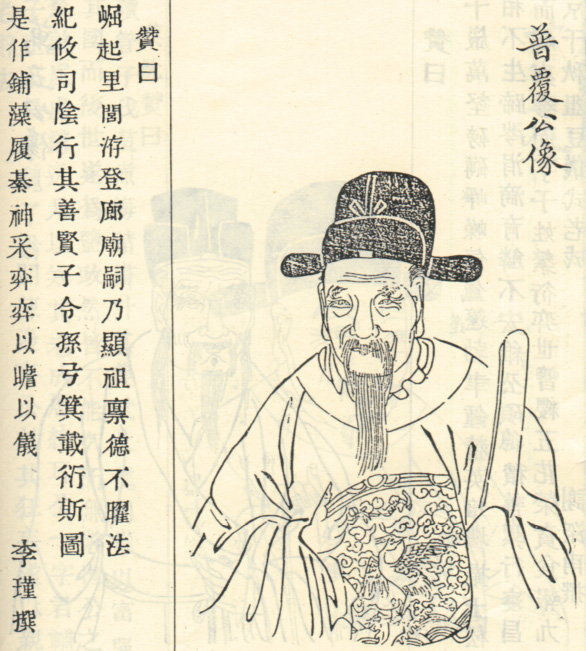 普覆公像
贊曰
崛起里閭洊登廊廟嗣乃顯祖稟德不曜法
紀攸司陰行其善賢子令孫弓箕載衍斯圖
是作鋪藻履綦神采弈弈以瞻以儀 李瑾撰